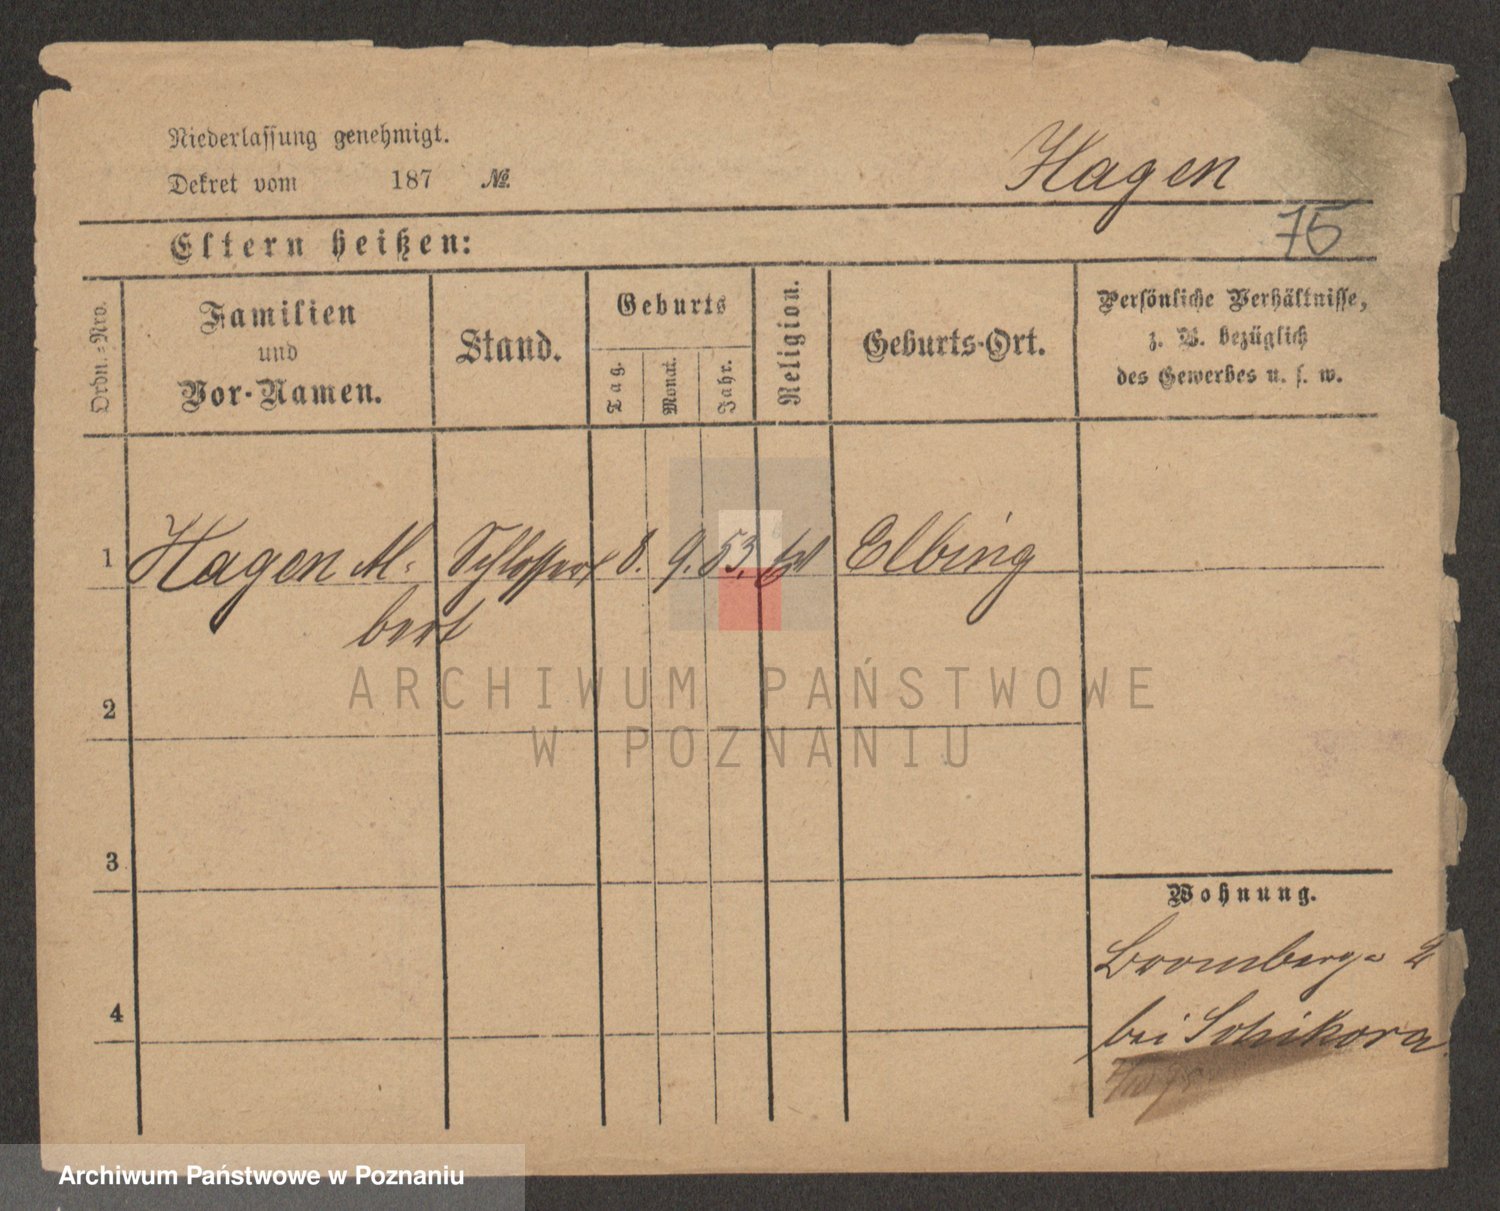 Niederlassung genehmigt.
Dekret vom 187 №
Hagen
75
Eltern heißen:
Ordn.-Nro.
Familien
und
Vor-Namen.
Stand.
Geburts
Tag.
Monat.
Jahr.
Religion.
Geburts-Ort.
Persönliche Verhältnisse,
z. B. bezüglich
des Gewerbes u. s. w.
1 Hagen Al- Schlosser 8. 9. 53. Elbing
bert
ARCHIWUM PAŃSTWOWE
W POZNANIU
2
3
Wohnung.
Bromberg- 2
4
bei
Archiwum Państwowe w Poznaniu